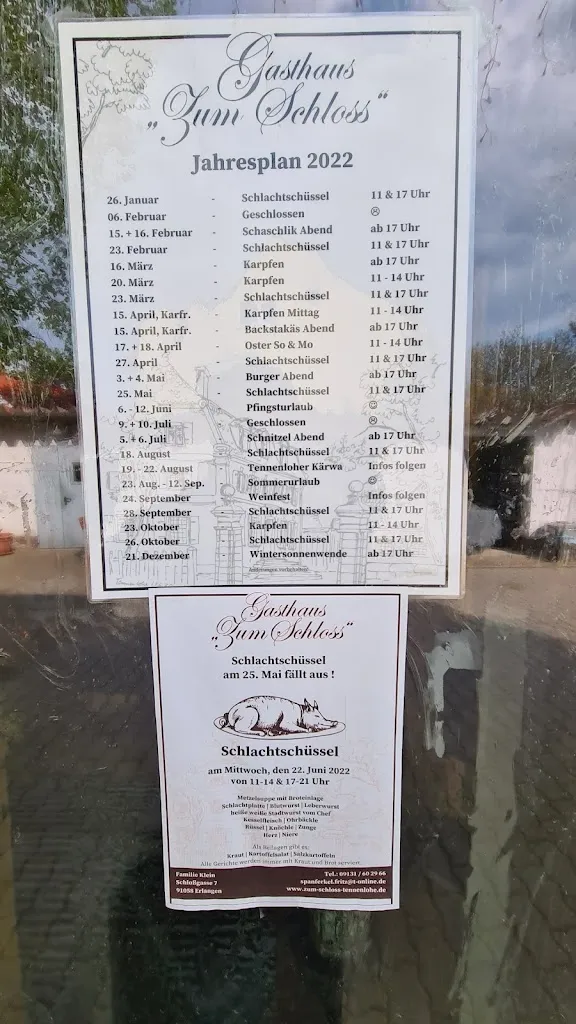 Gasthaus
„Zum Schloss“
Jahresplan 2022
26. Januar - Schlachtschüssel 11 & 17 Uhr
06. Februar - Geschlossen ☹
15. + 16. Februar - Schaschlik Abend ab 17 Uhr
23. Februar - Schlachtschüssel 11 & 17 Uhr
16. März - Karpfen ab 17 Uhr
20. März - Karpfen 11 - 14 Uhr
23. März - Schlachtschüssel 11 & 17 Uhr
15. April, Karfr. - Karpfen Mittag 11 - 14 Uhr
15. April, Karfr. - Backstakäs Abend ab 17 Uhr
17. + 18. April - Oster So & Mo 11 - 14 Uhr
27. April - Schlachtschüssel 11 & 17 Uhr
3. + 4. Mai - Burger Abend ab 17 Uhr
25. Mai - Schlachtschüssel 11 & 17 Uhr
6. - 12. Juni - Pfingsturlaub ☺
9. + 10. Juli - Geschlossen ☹
5. + 6. Juli - Schnitzel Abend ab 17 Uhr
18. August - Schlachtschüssel 11 & 17 Uhr
19. - 22. August - Tennenloher Kärwa Infos folgen
23. Aug. - 12. Sep. - Sommerurlaub ☺
24. September - Weinfest Infos folgen
28. September - Schlachtschüssel 11 & 17 Uhr
23. Oktober - Karpfen 11 - 14 Uhr
26. Oktober - Schlachtschüssel 11 & 17 Uhr
21. Dezember - Wintersonnenwende ab 17 Uhr
Änderungen vorbehalten!
Gasthaus
„Zum Schloss“
Schlachtschüssel
am 25. Mai fällt aus !
Schlachtschüssel
am Mittwoch, den 22. Juni 2022
von 11-14 & 17-21 Uhr
Metzelsuppe mit Broteinlage
Schlachtplatte | Blutwurst | Leberwurst
heiße weiße Stadtwurst vom Chef
Kesselfleisch | Ohrbäckle
Rüssel | Knöchle | Zunge
Herz | Niere
Als Beilagen gibt es:
Kraut | Kartoffelsalat | Salzkartoffeln
Alle Gerichte werden immer mit Kraut und Brot serviert.
Familie Klein Tel.: 09131 / 60 29 66
Schloßgasse 7 spanferkel.fritz@t-online.de
91058 Erlangen www.zum-schloss-tennenlohe.de